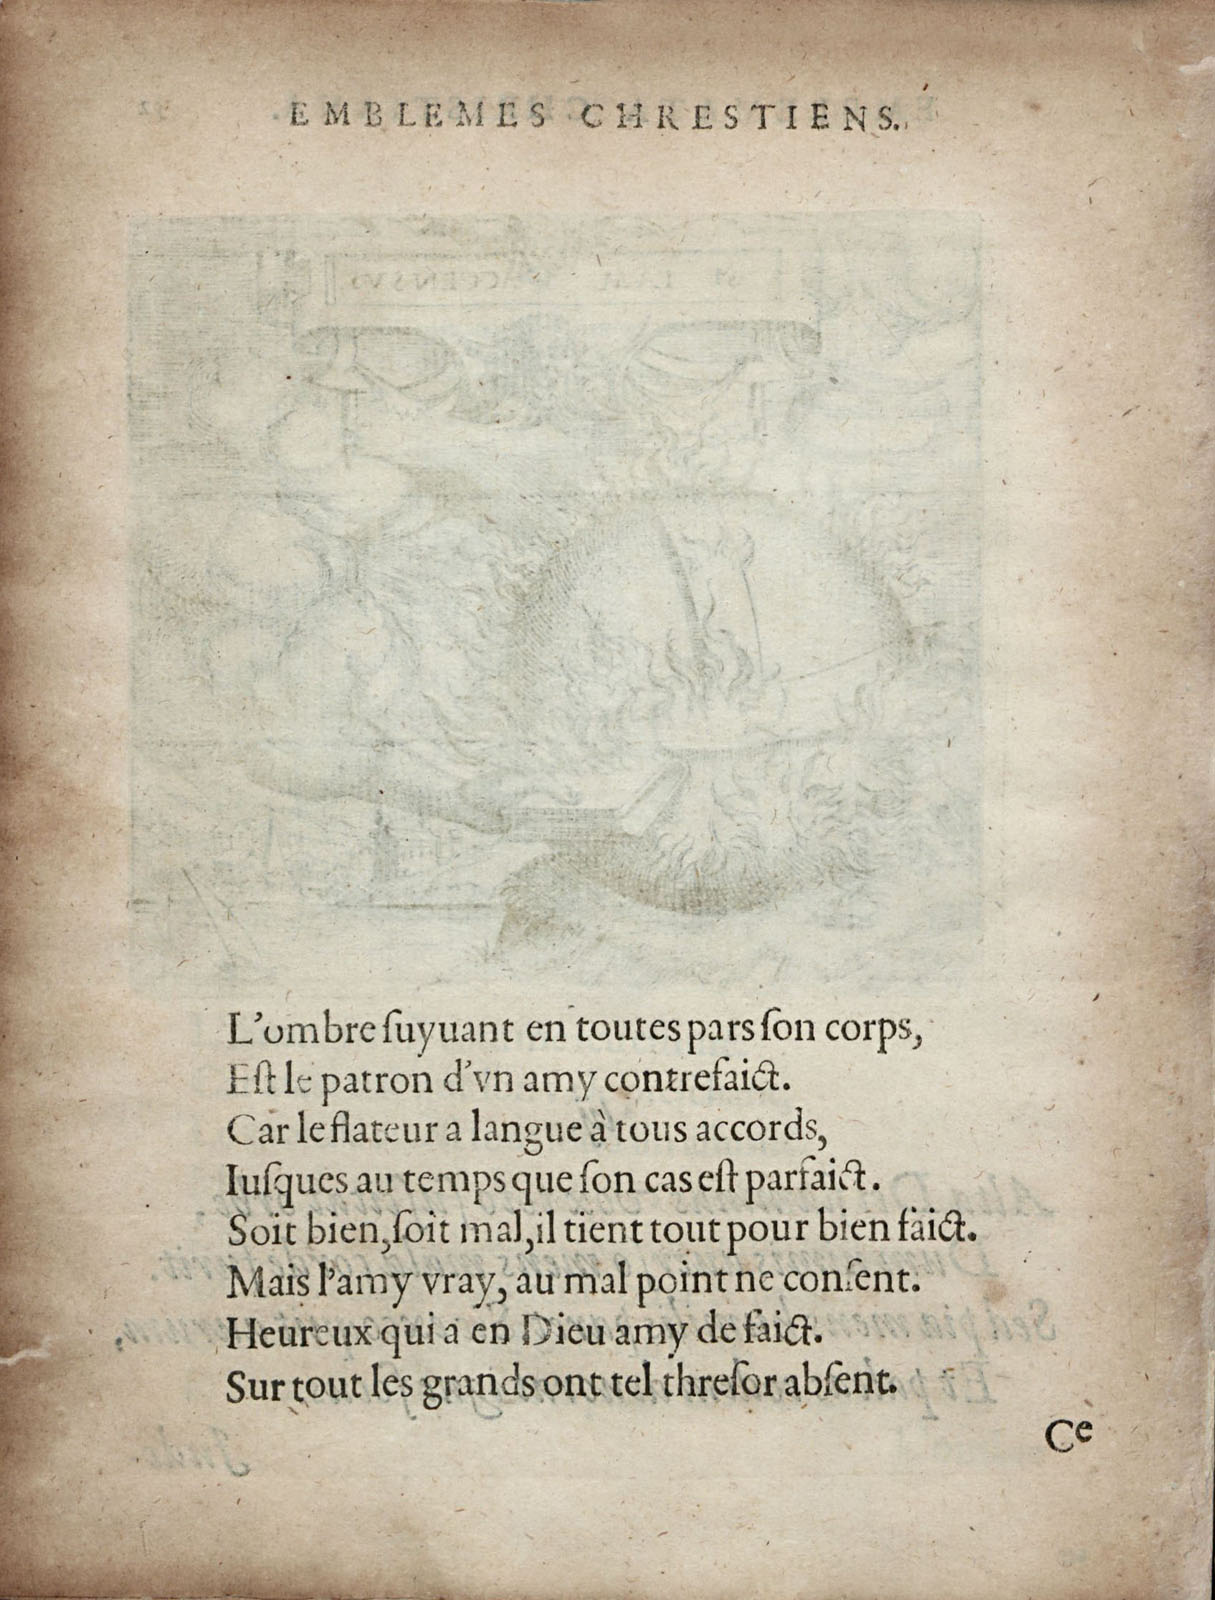 EMBLEMES CHRESTIENS.
L'ombre ſuyuant en toutes pars ſon corps,
Eſt le patron d'vn amy contrefaict.
Car le flateur a langue à tous accords,
Iuſques au temps que ſon cas eſt parfaict.
Soit bien, ſoit mal, il tient tout pour bien faict.
Mais l'amy vray, au mal point ne conſent.
Heureux qui a en Dieu amy de faict.
Sur tout les grands ont tel threſor abſent.
Ce